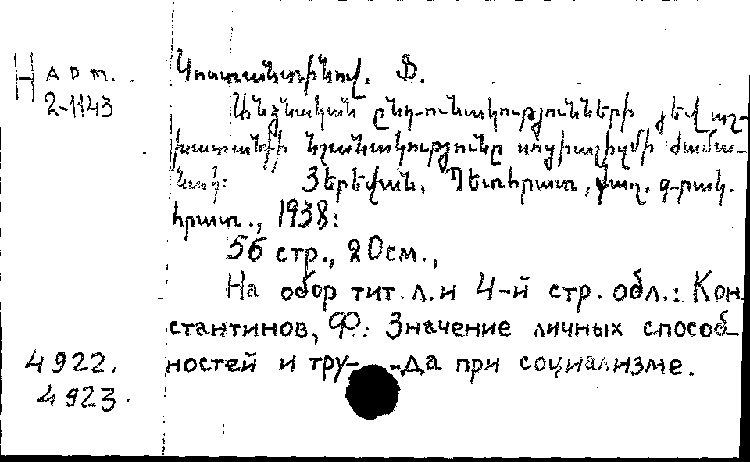 Н Арт.
2-1143
Կոստանտինով. Ֆ.
Անձնական ընդունակությունների յեվ աշ-
խատանքի նշանակությունը սոցիալիզմի ժամա-
նակ: Յերեվան, Պետհրատ, քաղ. գ-րակ.
հրատ., 1938:
56 стр., 20см.,
На обор тит.л. и 4-й стр. обл.: Кон
стантинов, Ф. Значение личных способ
ностей и тру- -да при социализме.
4922.
4923.